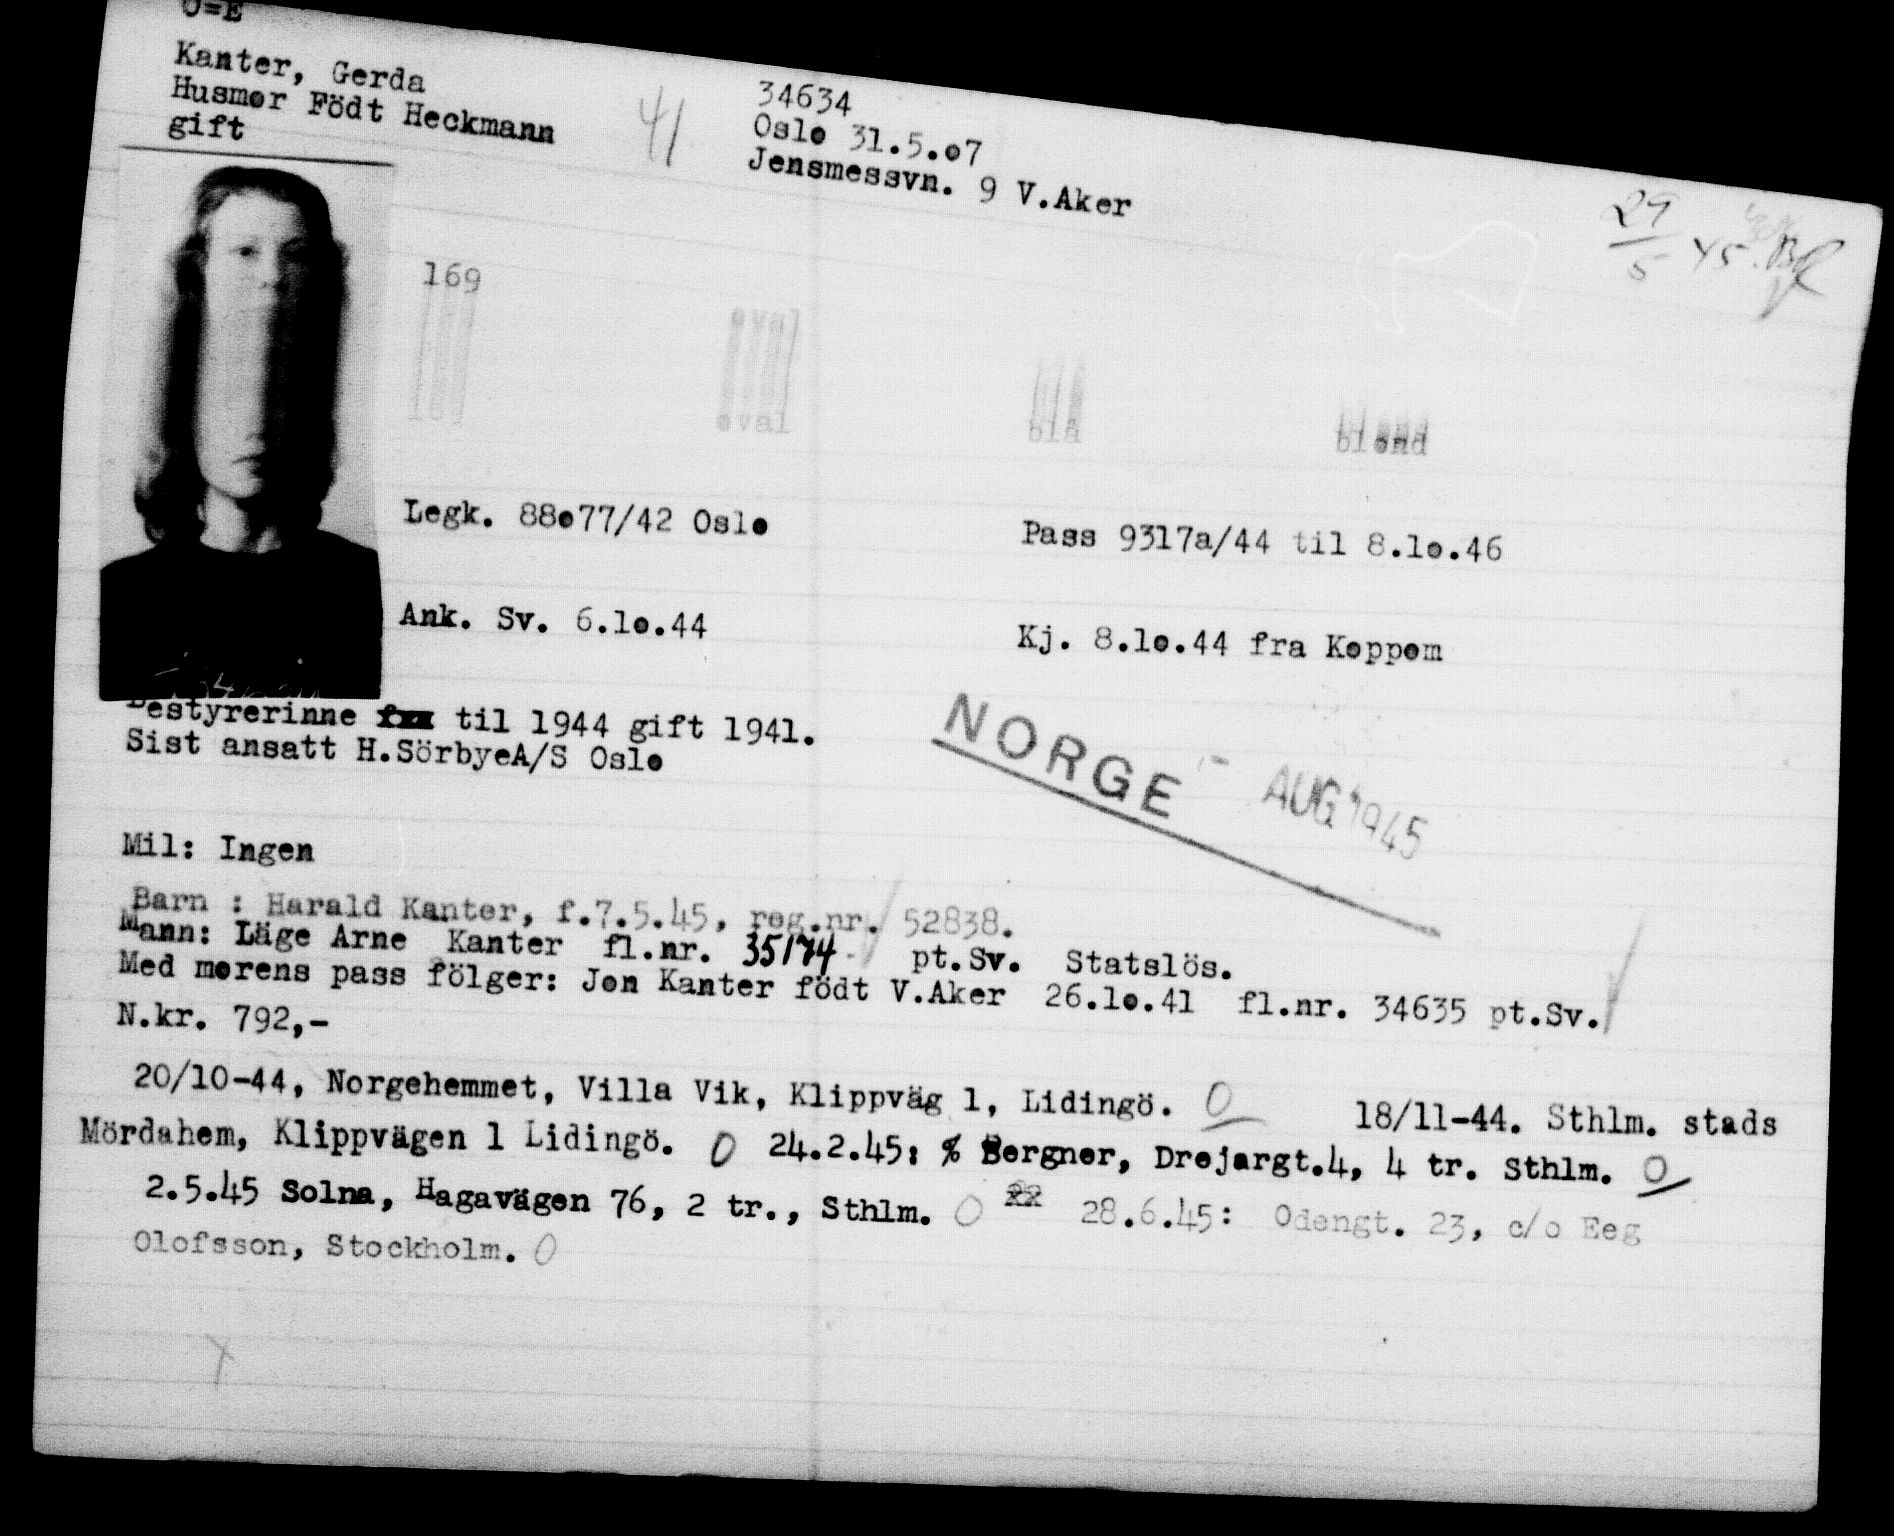 O=E
Kanter, Gerda
Husmor Födt Heckmann
gift
41
34634
Oslo 31.5.07
Jensmessvn. 9 V.Aker
29/5 45.
169
oval
blå
blond
Legk. 88077/42 Oslo
Pass 9317a/44 til 8.10.46
Ank. Sv. 6.10.44
Kj. 8.10.44 fra Koppom
Bestyrerinne til 1944 gift 1941.
Sist ansatt H.SörbyeA/S Oslo
NORGE - AUG 1945
Mil: Ingen
Barn : Harald Kanter, f.7.5.45, reg.nr. 52838.
Mann: Läge Arne Kanter fl.nr. 35174 pt.Sv. Statslös.
Med morens pass fölger: Jon Kanter födt V.Aker 26.10.41 fl.nr. 34635 pt.Sv.
N.kr. 792,-
20/10-44, Norgehemmet, Villa Vik, Klippväg 1, Lidingö. O 18/11-44. Sthlm. stads
Mördahem, Klippvägen 1 Lidingö. O 24.2.45: % Bergner, Drejargt.4, 4 tr. Sthlm. O
2.5.45 Solna, Hagavägen 76, 2 tr., Sthlm. O 28.6.45: Odengt. 23, c/o Eeg
Olofsson, Stockholm. O